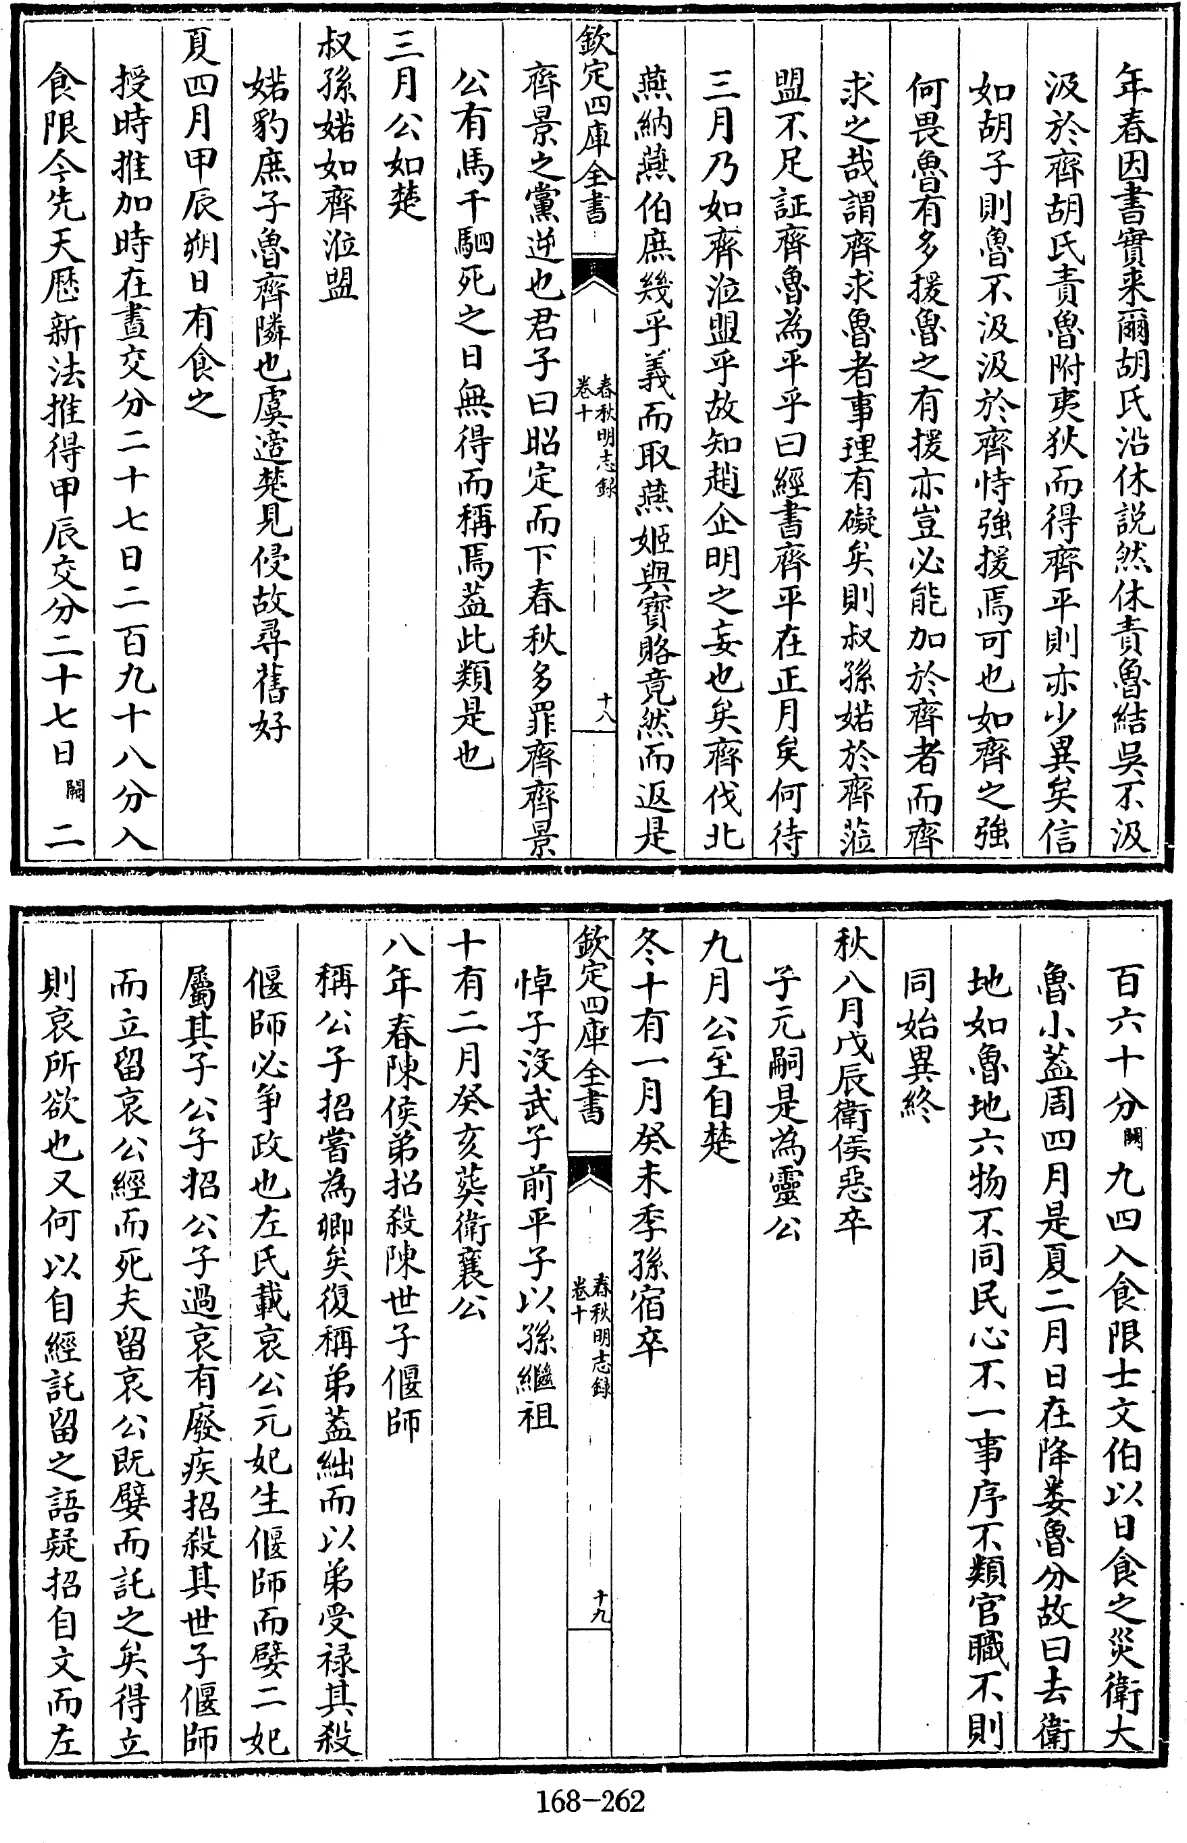 年春因書實来爾胡氏沿休説然休責魯結吳不汲
汲於齊胡氏責魯附夷狄而得齊平則亦少異矣信
如胡子則魯不汲汲於齊恃強援焉可也如齊之強
何畏魯有多援魯之有援亦豈必能加於齊者而齊
求之哉謂齊求魯者事理有礙矣則叔孫婼於齊蒞
盟不足証齊魯為平乎曰經書齊平在正月矣何待
三月乃如齊涖盟乎故知趙企明之妄也矣齊伐北
燕納燕伯庶幾乎義而取燕姬與寳賂竟然而返是
欽定四庫全書
春秋明志録
卷十
十八
齊景之黨逆也君子曰昭定而下春秋多罪齊齊景
公有馬千駟死之日無得而稱焉葢此類是也
三月公如楚
叔孫婼如齊涖盟
婼豹庶子魯齊隣也虞適楚見侵故尋舊好
夏四月甲辰朔日有食之
授時推加時在晝交分二十七日二百九十八分入
食限今先天厯新法推得甲辰交分二十七日闕二
百六十分闕九四入食限士文伯以日食之災衛大
魯小葢周四月是夏二月日在降婁魯分故曰去衛
地如魯地六物不同民心不一事序不類官職不則
同始異終
秋八月戊辰衛侯惡卒
子元嗣是為靈公
九月公至自楚
冬十有一月癸未季孫宿卒
欽定四庫全書
春秋明志録
卷十
十九
悼子沒武子前平子以孫繼祖
十有二月癸亥葬衛襄公
八年春陳侯弟招殺陳世子偃師
稱公子招嘗為卿矣復稱弟葢絀而以弟受禄其殺
偃師必爭政也左氏載哀公元妃生偃師而嬖二妃
屬其子公子招公子過哀有廢疾招殺其世子偃師
而立留哀公經而死夫留哀公既嬖而託之矣得立
則哀所欲也又何以自經託留之語疑招自文而左
168-262